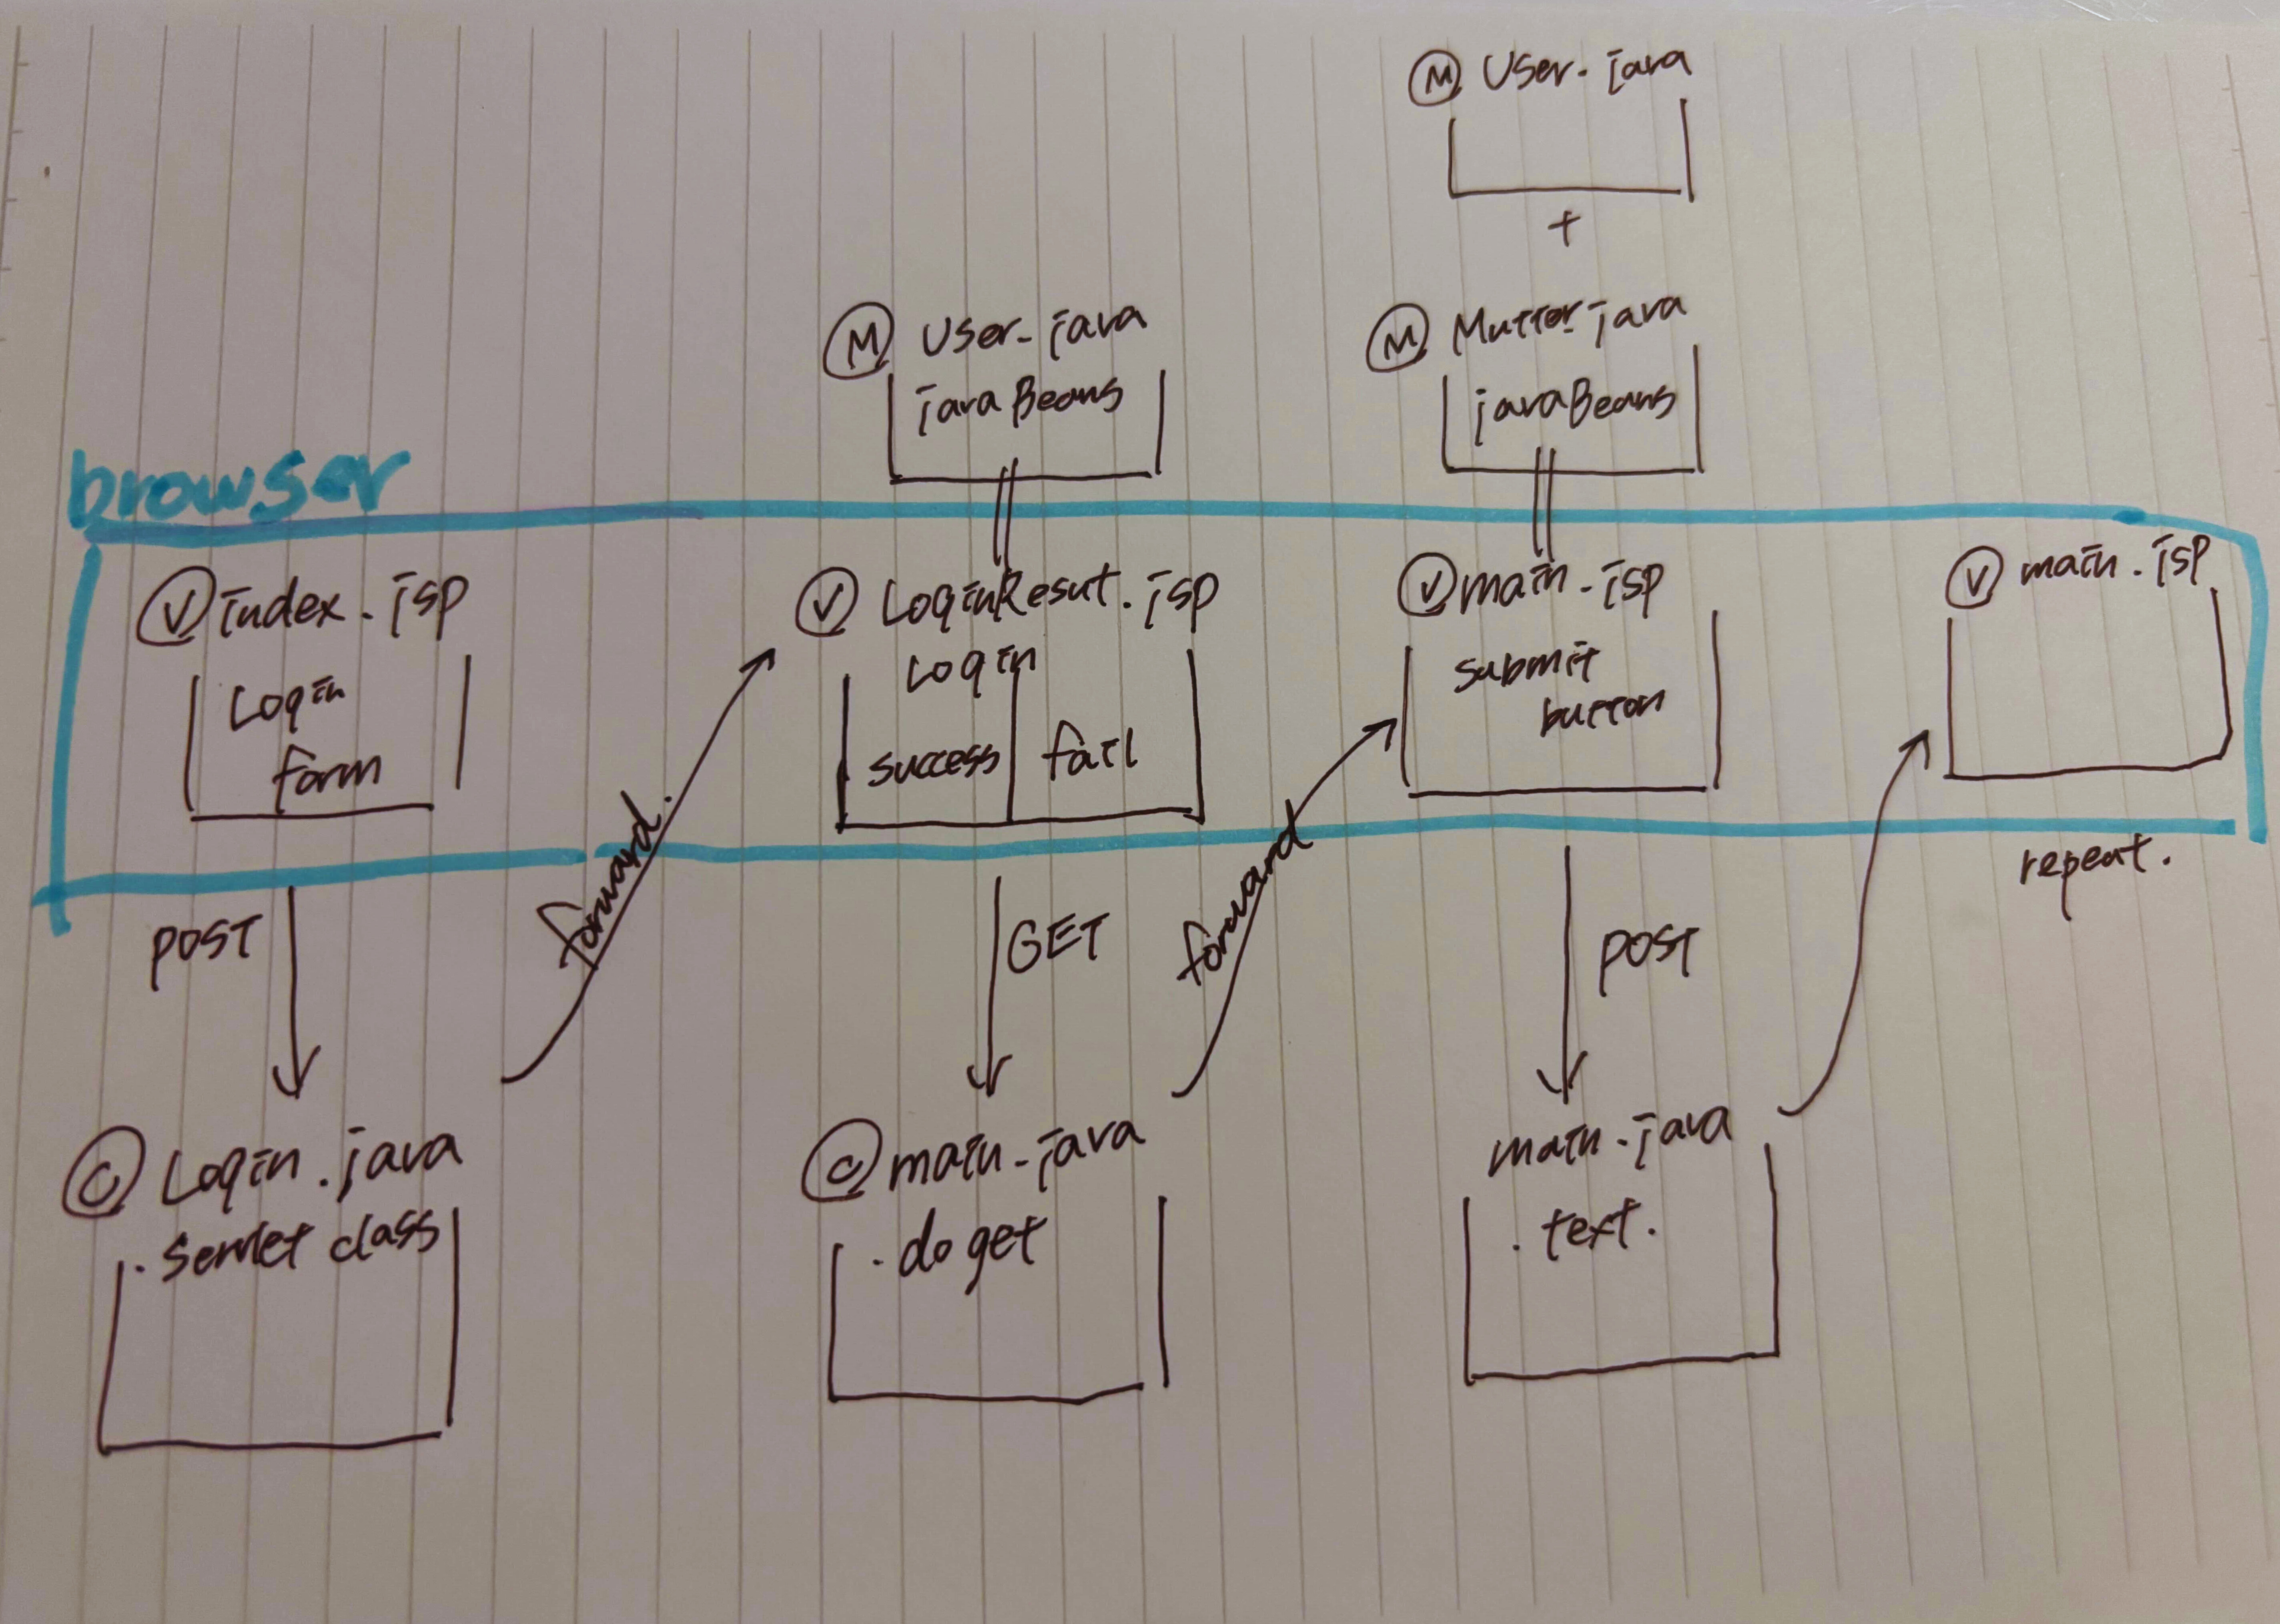 M User.java
+
M User.java
java Beans
M Mutter.java
javaBeans
browser
V index.jsp
Login
form
V LoginResut.jsp
Login
success fail
V main.jsp
submit
button
V main.jsp
repeat.
POST
forward.
GET
forward
POST
C Login.java
.servlet class
C main.java
.do get
main.java
.text.